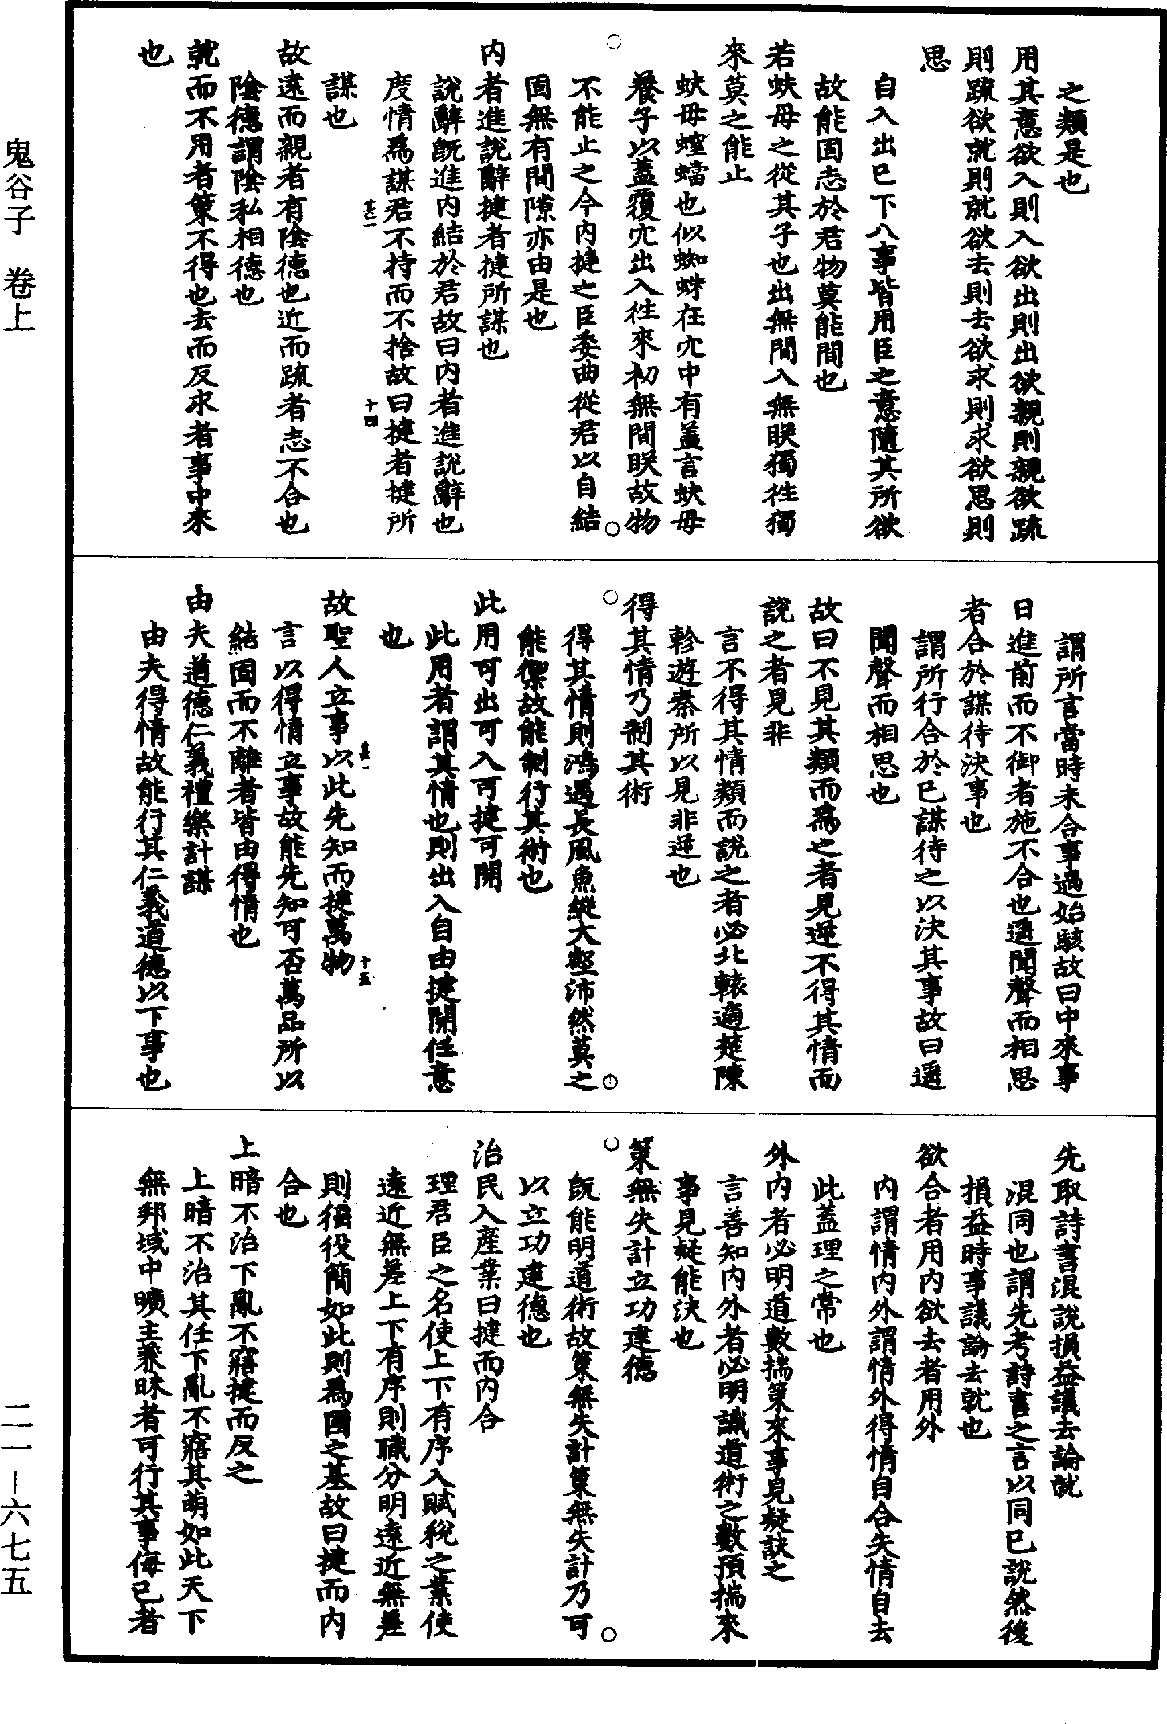 之類是也
用其意欲入則入欲出則出欲親則親欲疏
則疏欲就則就欲去則去欲求則求欲思則
思
自入出已下八事皆用臣之意隨其所欲
故能固志於君物莫能間也
若蚨母之從其子也出無間入無眹獨徃獨
來莫之能止
蚨母螲蟷也似蜘蛛在穴中有蓋言蚨母
養子以蓋覆穴出入徃來初無間眹故物
不能止之今内揵之臣委曲從君以自結
固無有間隙亦由是也
内者進說辭揵者揵所謀也
說辭既進内結於君故曰内者進說辭也
度情為謀君不持而不捨故曰揵者揵所
謀也
故遠而親者有陰德也近而疏者志不合也
陰德謂陰私相德也
就而不用者策不得也去而反求者事中來
也
謂所言當時未合事過始駭故曰中來事
日進前而不御者施不合也遥聞聲而相思
者合於謀待決事也
謂所行合於已謀待之以決其事故曰遥
聞聲而相思也
故曰不見其類而為之者見逆不得其情而
說之者見非
言不得其情類而說之者必北轅適楚陳
軫遊秦所以見非逆也
得其情乃制其術
得其情則鴻遇長風魚縱大壑沛然莫之
能禦故能制行其術也
此用可出可入可揵可開
此用者謂其情也則出入自由揵開任意
也
故聖人立事以此先知而揵萬物
言以得情立事故能先知可否萬品所以
結固而不離者皆由得情也
由夫道德仁義禮樂計謀
由夫得情故能行其仁義道德以下事也
先取詩書混說損益議去論就
混同也謂先考詩書之言以同已說然後
損益時事議論去就也
欲合者用内欲去者用外
内謂情内外謂情外得情自合失情自去
此蓋理之常也
外内者必明道數揣策來事見疑訣之
言善知内外者必明識道術之數預揣來
事見疑能決也
策無失計立功建德
既能明道術故策無失計策無失計乃可
以立功建德也
治民入產業曰揵而内合
理君臣之名使上下有序入賦稅之業使
遠近無差上下有序則職分明遠近無差
則徭役簡如此則為國之基故曰揵而内
合也
上暗不治下亂不寤揵而反之
上暗不治其任下亂不寤其萌如此天下
無邦域中曠主兼昧者可行其事侮已者
鬼谷子 卷上
二一－六七五